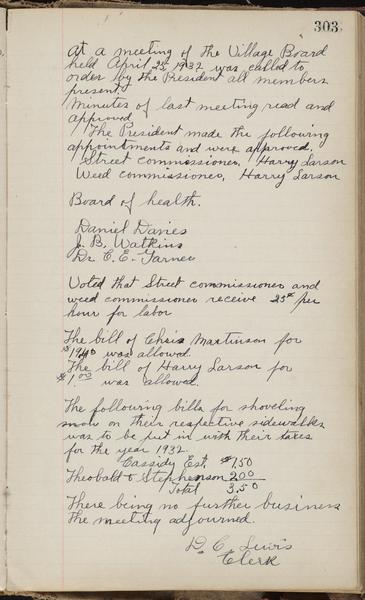 303
At a meeting of the Village Board
held April 25, 1932 was called to
order by the President all members
present.
Minutes of last meeting read and
approved
The President made the following
appointments and were approved.
Street commissioner, Harry Larson
Weed commissioner, Harry Larson
Board of health.
Daniel Davies
J. B. Watkins
Dr. C. E.
Voted that Street commissioner and
weed commissioner receive 25¢ per
hour for labor
The bill of Chris Martinson for
was allowed.
The bill of Harry Larson for
$1.00 was allowed.
The following bills for shoveling
snow on their respective sidewalks
was to be put in with their taxes
for the year 1932.
Cassidy Est. $1.50
Theobald & Stephenson 2.00
Total 3.50
There being no further business
the meeting adjourned.
D. C. Lewis
Clerk